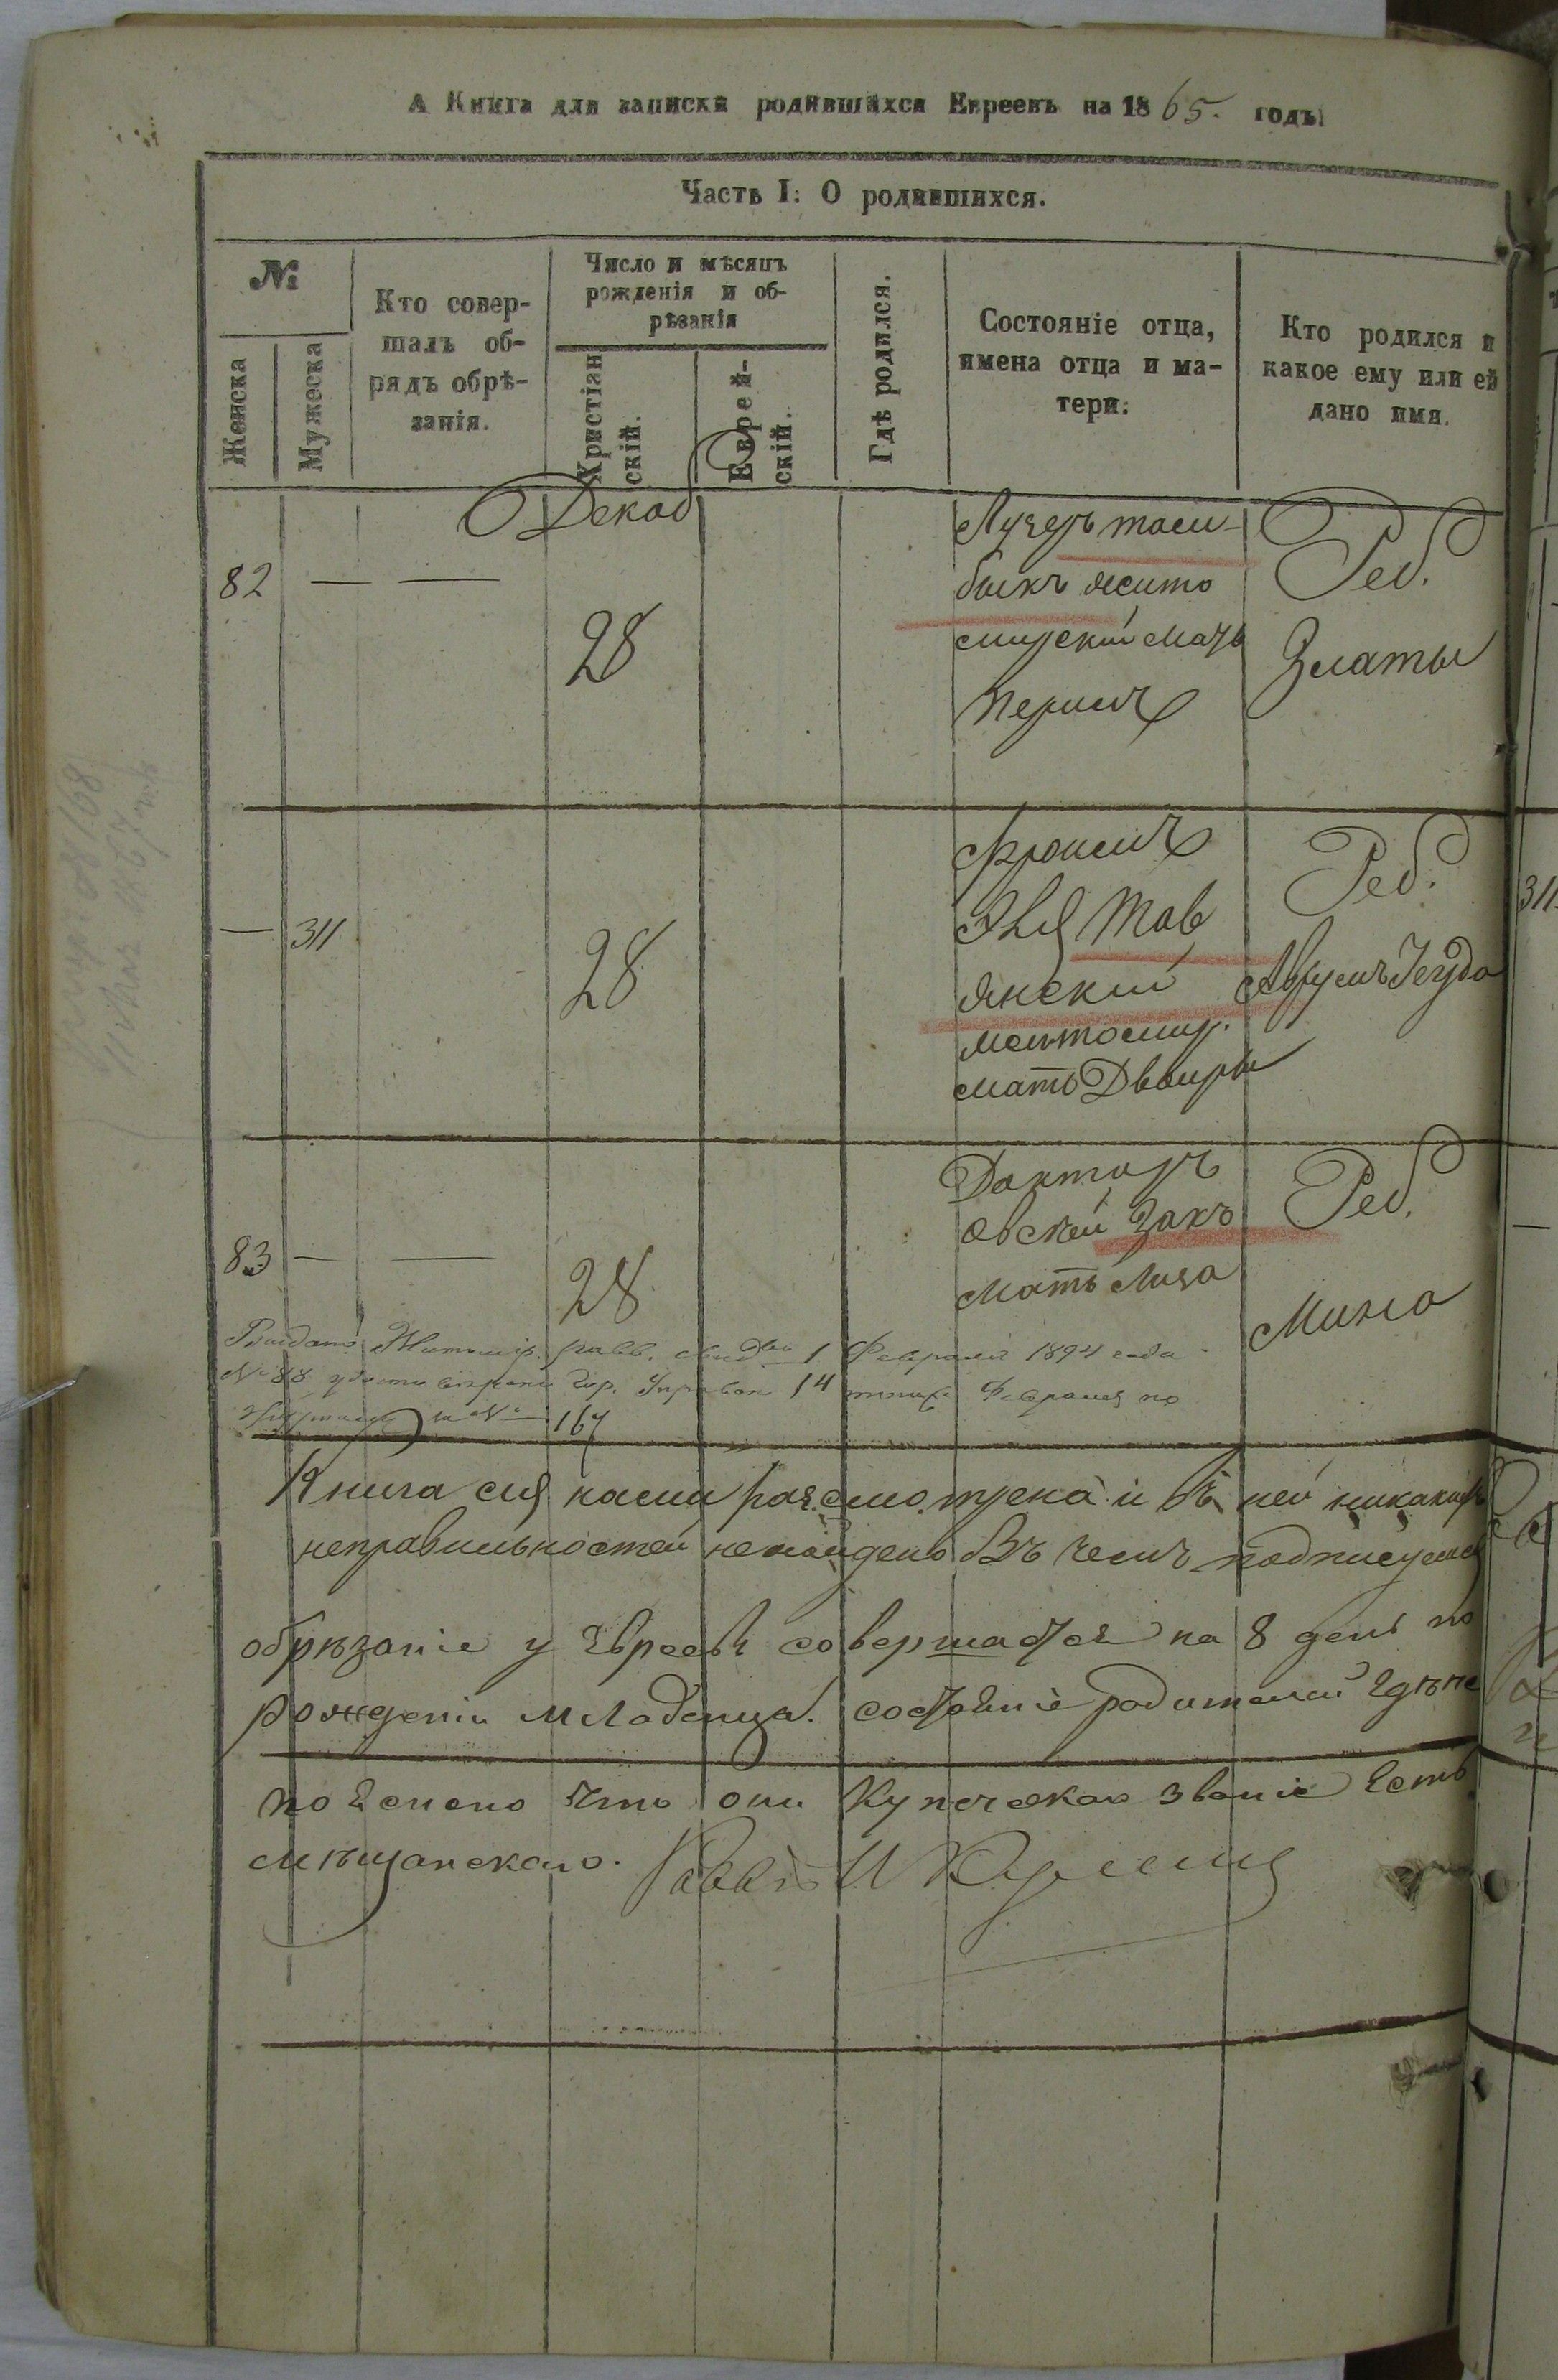 А Книга для записки родившихся Евреевъ на 1865. годъ.
Часть I: О родившихся.
№
Женска
Мужеска
Кто совер-
шалъ об-
рядъ обрѣ-
занія.
Число и мѣсяцъ
рожденія и об-
рѣзанія
Христіан
скій.
Еврей-
скій.
Гдѣ родился.
Состояніе отца,
имена отца и ма-
тери.
Кто родился и
какое ему или ей
дано имя.
Декаб
82 — —
28
Лузеръ
быкъ жито
мирский Мать
Перисъ
Реб.
Златы
— 311
28
Фроимъ
Эля Тов
янский
житомир.
мать Двойры
Реб.
Аврумъ Іегуда
311
83 — —
28
Доктор
овский Закъ
Мать Лиза
Реб.
Мина
Выдано Житомір. равв. свид 1 Февраля 1894 года
№ 88 Гор. Управою 14 Февраля по
за № 167
Книга сія нами разсмотрена и въ ней никакихъ
неправильностей ненайдено Въ чемъ подписуемся
обрѣзаніе у Евреевъ совершается на 8 день по
рожденіи младенца. состояніе родителей гдѣ не
пояснено что они Купеческаго званіе Есть
мѣщанскаго.